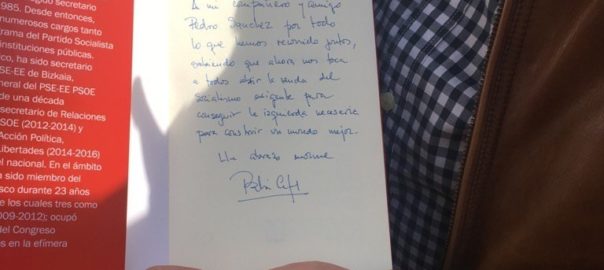 secretario
985. Desde entonces,
numerosos cargos tanto
rama del Partido Socialista
instituciones públicas.
co, ha sido secretario
SE-EE de Bizkaia,
neral del PSE-EE PSOE
de una década
secretario de Relaciones
SOE (2012-2014) y
Acción Política,
Libertades (2014-2016)
el nacional. En el ámbito
ha sido miembro del
sco durante 23 años
e los cuales tres como
009-2012); ocupó
del Congreso
os en la efímera
A mi compañero y amigo
Pedro Sánchez por todo
lo que hemos recorrido juntos,
sabiendo que ahora nos toca
a todos abrir la senda del
socialismo exigente para
conseguir la izquierda necesaria
para construir un mundo mejor.
Un abrazo enorme